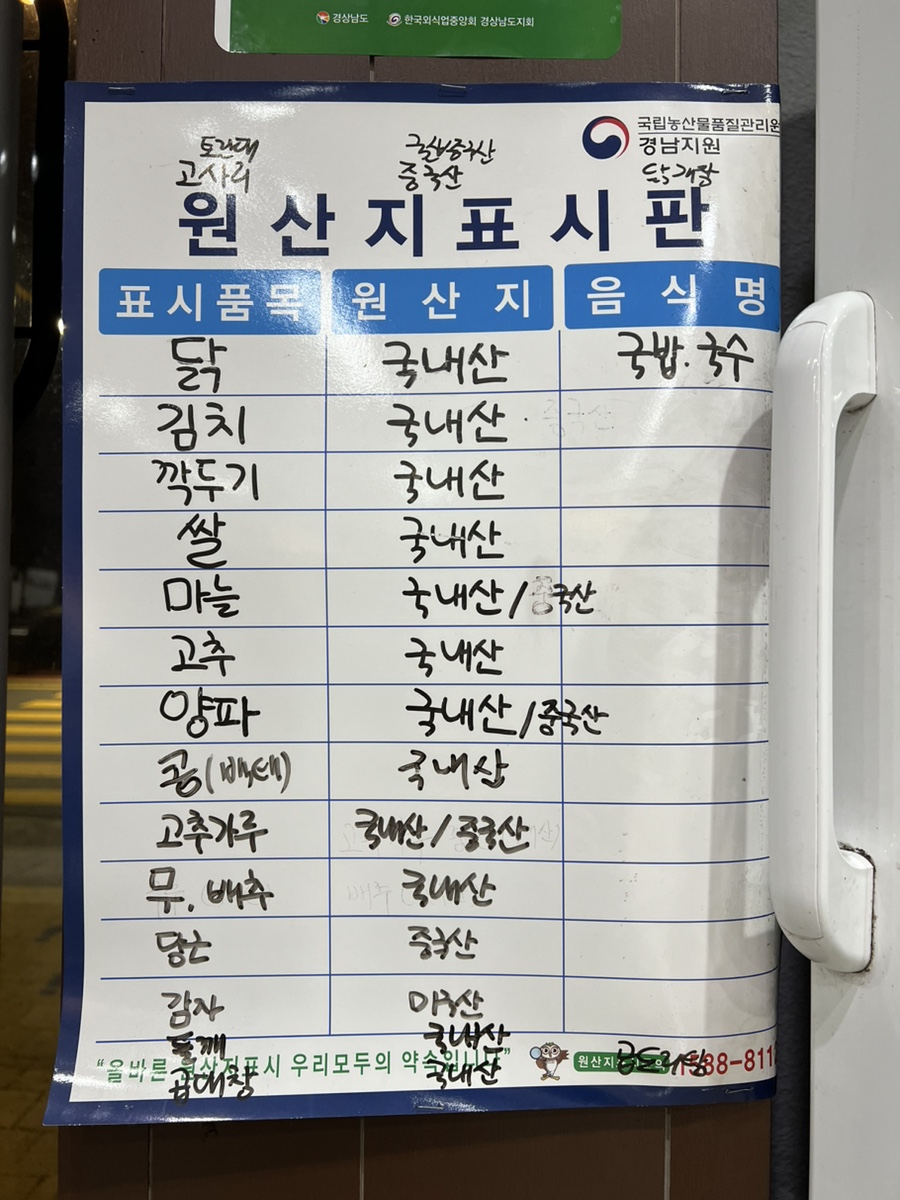 경상남도 한국외식업중앙회 경상남도지회
국립농산물품질관리원
경남지원
토란대 국산, 중국산
고사리 중국산 닭개장
원산지표시판
표시품목 원산지 음식명
닭 국내산 국밥. 국수
김치 국내산 · 중국산
깍두기 국내산
쌀 국내산
마늘 국내산 / 중국산
고추 국내산
양파 국내산 / 중국산
콩 (백태) 국내산
고추가루 국내산 / 중국산
무. 배추 국내산
당근 중국산
감자 미국산
들깨 국내산
"올바른 원산지표시 우리모두의 약속입니다" 원산지 1588-811
곱대창 국내산